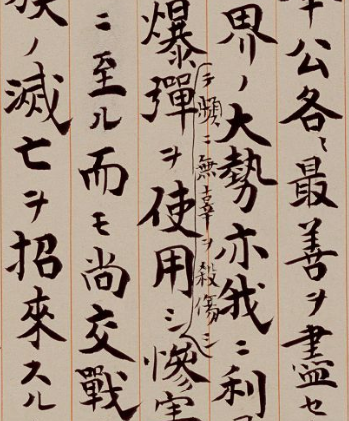 奉公各〻最善ヲ盡セ
界ノ大勢亦我ニ利
爆彈ヲ使用シ
ヲ頻ニ無辜ヲ殺傷シ
慘害
ニ至ル而モ尚交戰
族ノ滅亡ヲ招來スル